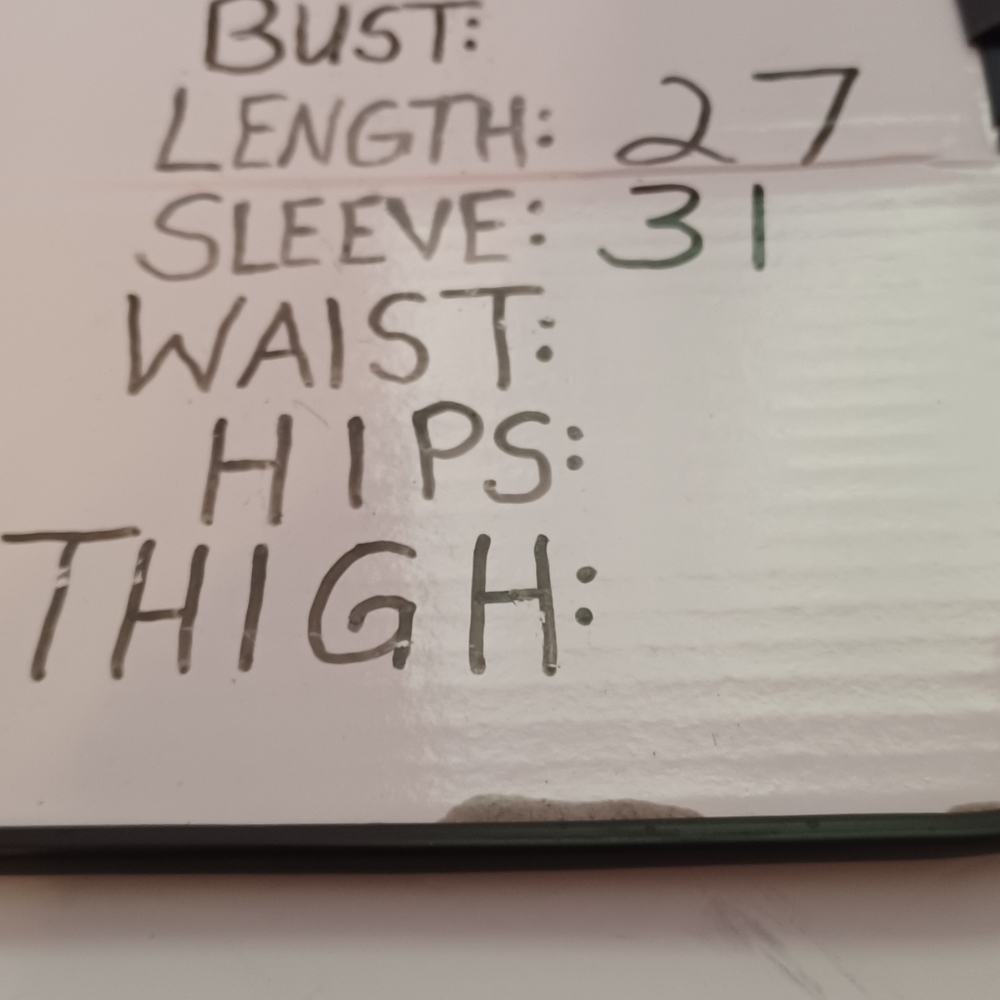 BUST:
LENGTH: 27
SLEEVE: 31
WAIST:
HIPS:
THIGH: